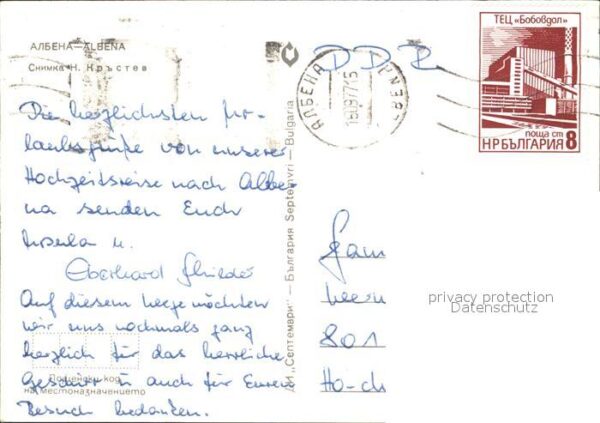 АЛБЕНА—ALBENA
Снимка Н. Кръстев
DDR
АЛБЕНА
ALBENA
ТЕЦ „Бобовдол"
поща ст
НР БЪЛГАРИЯ 8
Die herzlichsten Ur-
laubsgrüße von unserer
Hochzeitsreise nach Albe-
na senden Euch
Ursula u.
Eberhard
Auf diesem Wege möchten
wir uns nochmals ganz
herzlich für das herrliche
Geschirr u. auch für Euren
Besuch bedanken.
Пощенски код
на местоназначението
ДИ „Септември" — България Septemvri — Bulgaria
Fam
801
privacy protection
Datenschutz